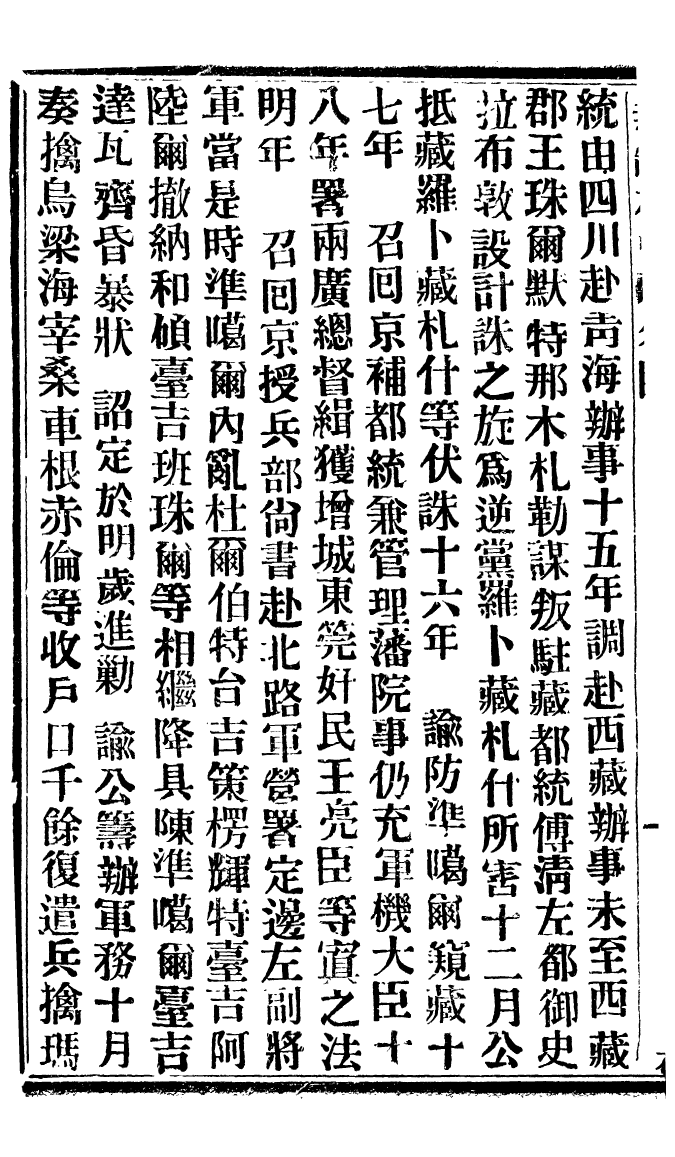 統由四川赴靑海辦事十五年調赴西藏辦事未至西藏
郡王珠爾默特那木札勒謀叛駐藏都統傅淸左都御史
拉布敦設計誅之旋爲逆黨羅卜藏札什所害十二月公
抵藏羅卜藏札什等伏誅十六年　諭防準噶爾窺藏十
七年　召囘京補都統兼管理藩院事仍充軍機大臣十
八年署兩廣總督緝獲增城東筦奸民王亮臣等寘之法
明年　召囘京授兵部尙書赴北路軍營署定邊左副將
軍當是時準噶爾內亂杜爾伯特台吉策楞輝特臺吉阿
陸爾撤納和碩臺吉班珠爾等相繼降具陳準噶爾臺吉
達瓦齊昏暴狀　詔定於明歲進勦　諭公籌辦軍務十月
奏擒烏梁海宰桑車根赤倫等收戶口千餘復遣兵擒瑪